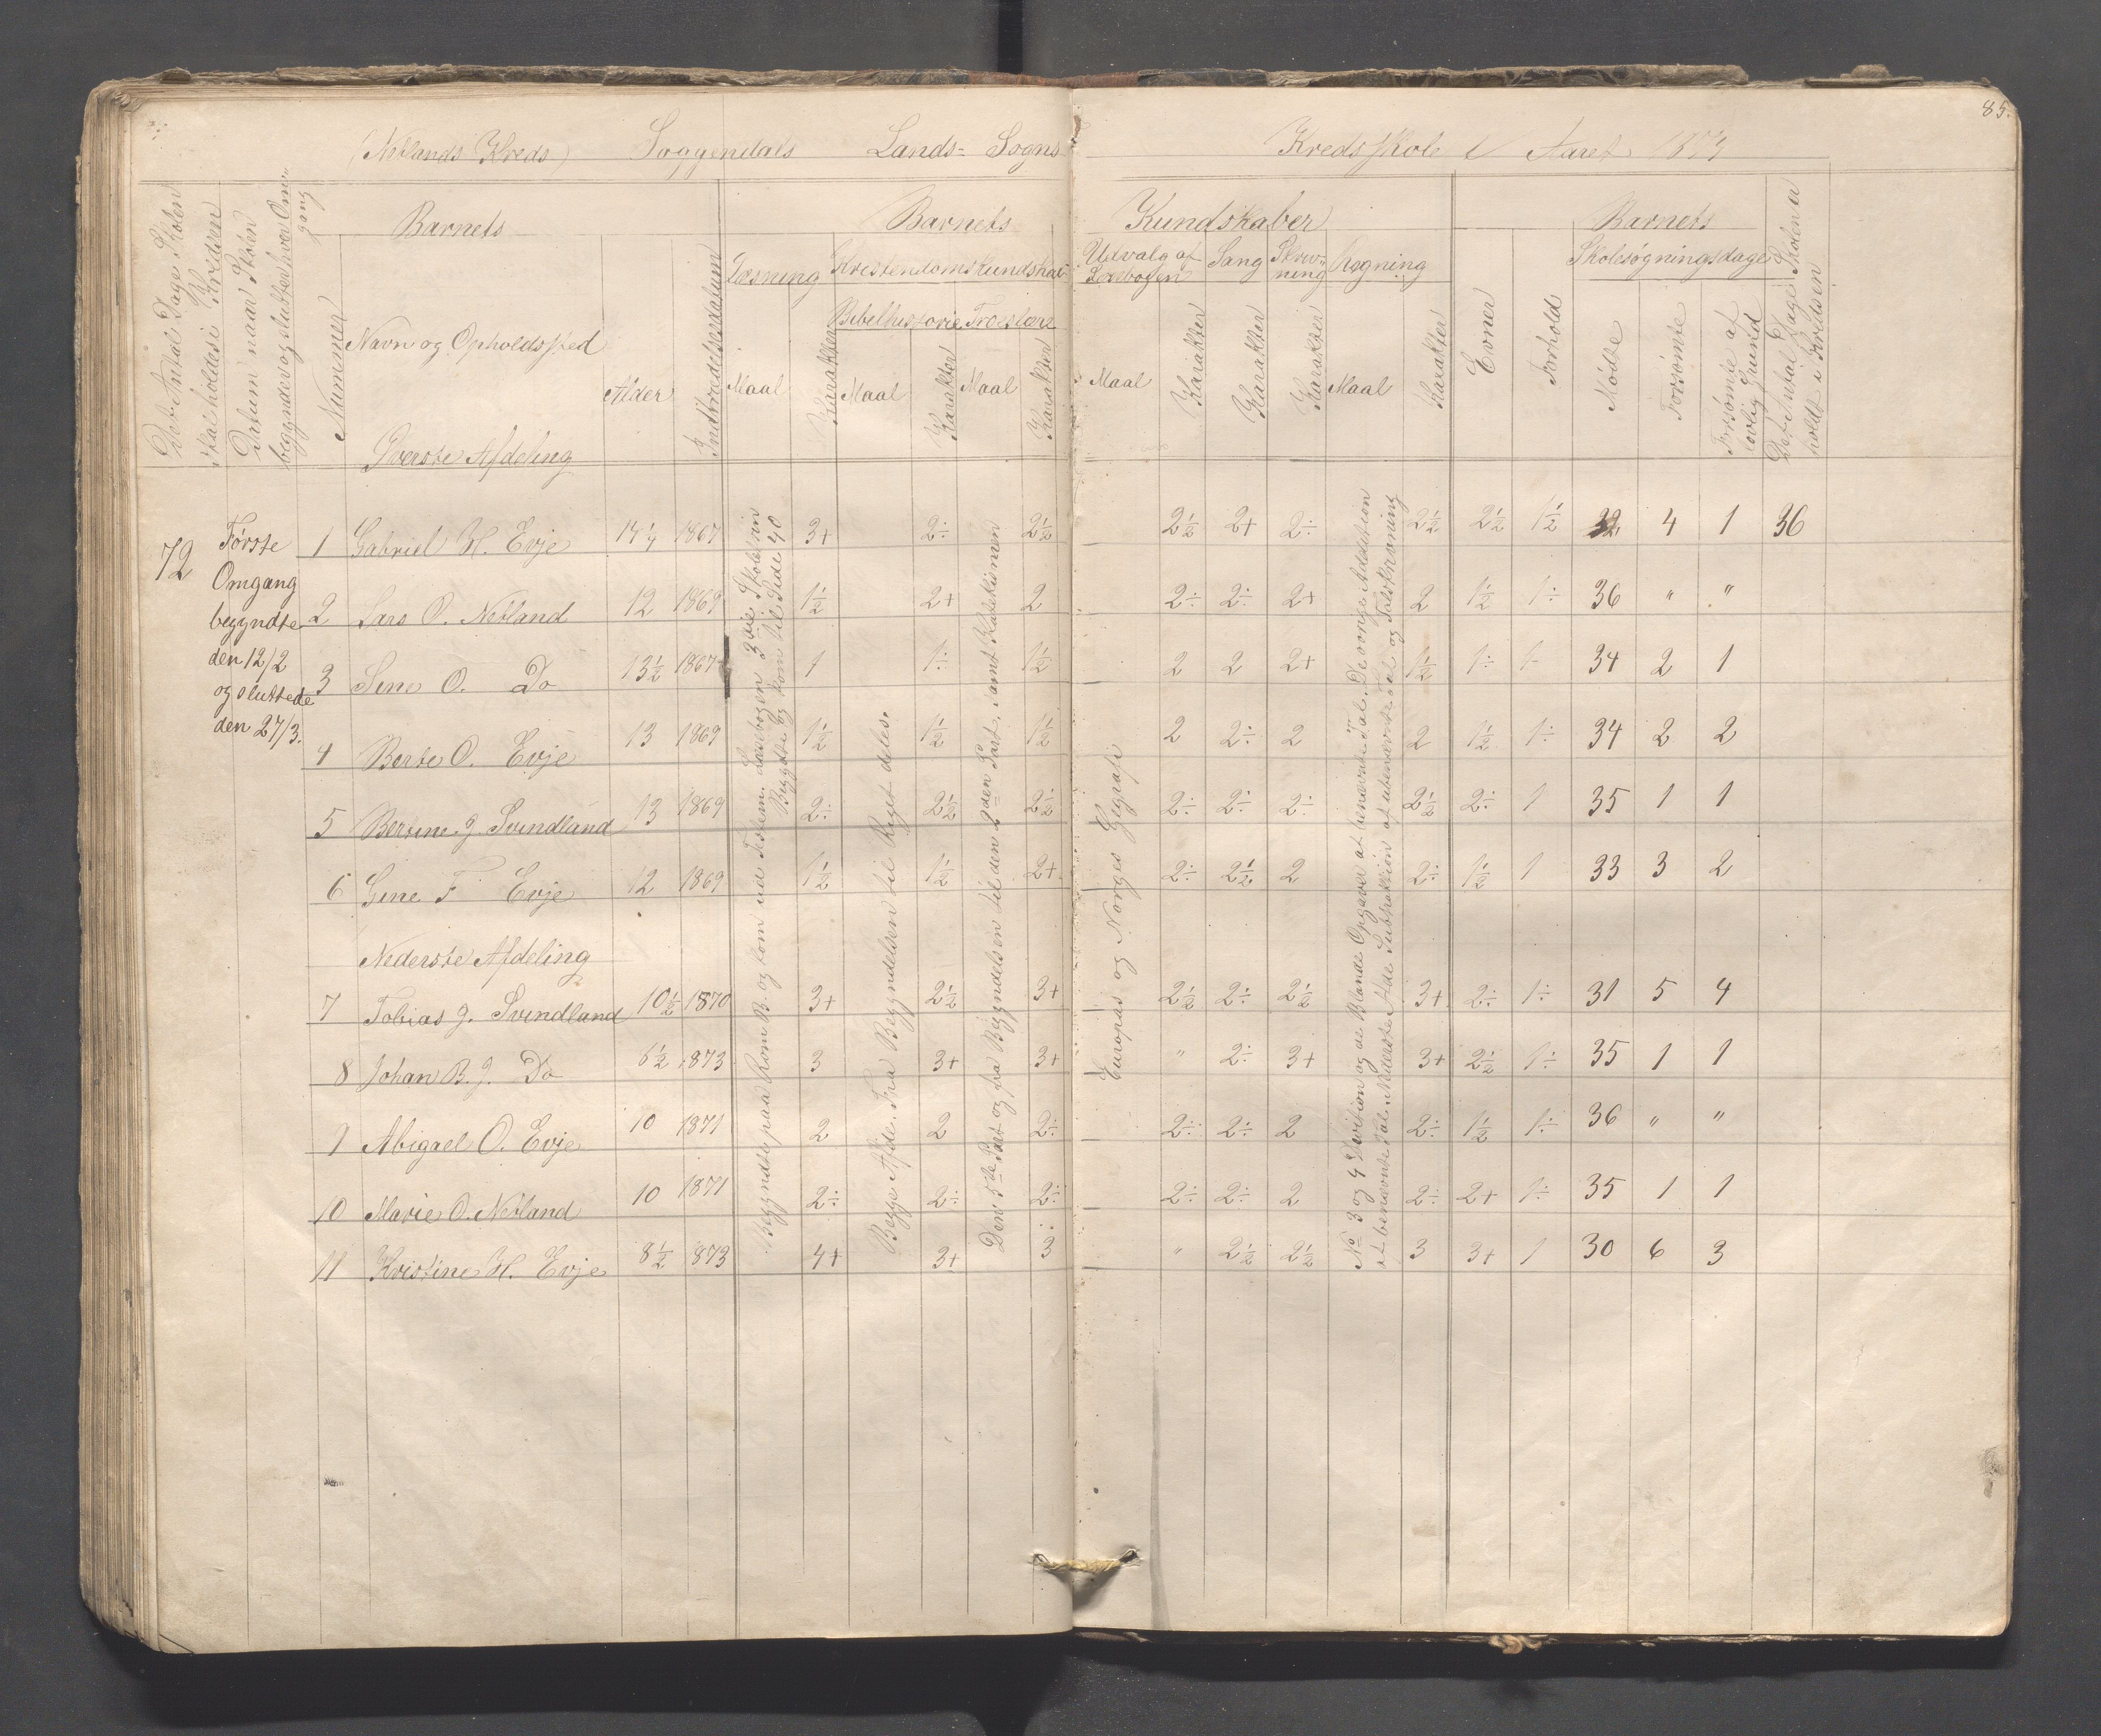 85.
(Netlands Kreds) Soggendals Lands- Sogns Kredsskole i Aaret
Det Antal Dage Skolen skal holdes i Kredsen
Datum naar Skolen begynder og slutter hver Omgang
Nummer
Barnets
Navn og Opholdssted
Alder
Indtrædelsesdatum
Barnets Kundskaber
Læsning
Kristendomskundskab
Bibelhistorie Troeslære
Udvalg af Læsebogen
Sang
Skrivning
Regning
Maal Karakter Maal Karakter Maal Karakter
Maal Karakter Karakter Karakter Maal Karakter
Evner
Forhold
Barnets
Skolesøgningsdage
Mødte
Forsømte
Forsømte af lovlig Grund
Det Antal Dage Skolen er holdt i Kredsen
Øverste Afdeling
72
Første
Omgang
begyndte
den 12/2
og sluttede
den 27/3.
1 Gabriel H. Evje 14 1/4 1867 3+ 2÷ 2½ 2½ 2+ 2÷ 2½ 2½ 1½ 32 4 1 36
2 Lars O. Netland 12 1869 1½ 2+ 2 2÷ 2÷ 2+ 2 1½ 1÷ 36 " "
3 Sine O. Do 13½ 1867 1 1÷ 1½ 2 2 2+ 1½ 1÷ 1÷ 34 2 1
4 Berte O. Evje 13 1869 1½ 1½ 1½ 2 2÷ 2 2 1½ 1÷ 34 2 2
5 Bertine J. Svindland 13 1869 2÷ 2½ 2½ 2÷ 2÷ 2÷ 2½ 2÷ 1 35 1 1
6 Gine F Evje 12 1869 1½ 1½ 2+ 2÷ 2½ 2 2÷ 1½ 1 33 3 2
Nederste Afdeling
7 Tobias J. Svindland 10½ 1870 3+ 2½ 3+ 2½ 2÷ 2½ 3+ 2÷ 1÷ 31 5 4
8 Johan B. J. Do 6½ 1873 3 3+ 3+ " 2÷ 3+ 3+ 2½ 1÷ 35 1 1
9 Abigael O. Evje 10 1871 2 2 2÷ 2÷ 2÷ 2 2÷ 1½ 1÷ 36 " "
10 Marie O. Netland 10 1871 2÷ 2÷ 2÷ 2÷ 2÷ 2 2÷ 2+ 1÷ 35 1 1
11 Kristine H. Evje 8½ 1873 4+ 3+ 3 " 2½ 2½ 3 3+ 1 30 6 3
Begyndte paa Rom B. og kom ud Testem. Læsebogen 3die Skoletrin
Begyndte og kom til Side 40
Begge Afde. Fra Begyndelsen til Riget deles.
Den 5te Part og fra Begyndelsen til den 2den Part, samt Katekismen
Europas og Norges Geografi
No 3 og 4 Division og de Blande Opgaver af benævnte Tal. De øvrige Addition
af benævnte Tal. Nederste Afde Subtraktion af ubenævnte Tal og Talskrivning